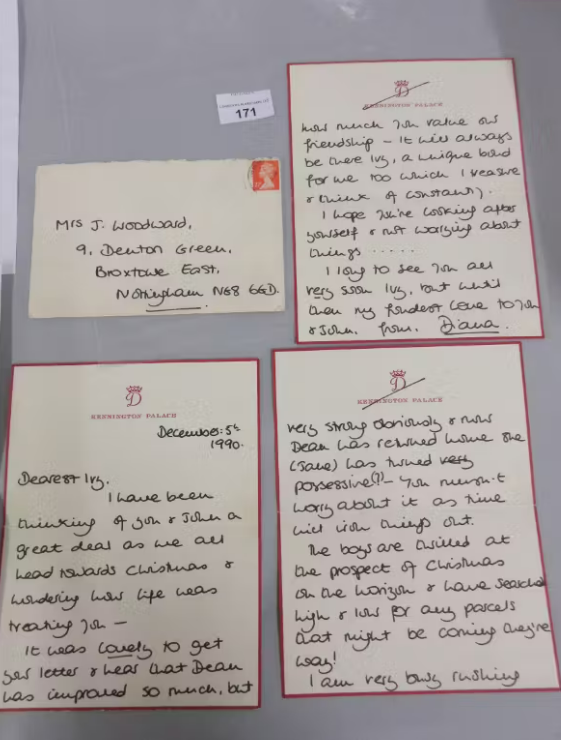 171
Mrs J. Woodward,
9, Denton Green,
Broxtowe East,
Nottingham NG8 6GD.
D
KENSINGTON PALACE
December: 5th
1990.
Dearest Ivy,
I have been
thinking of you & John a
great deal as we all
head towards Christmas &
wondering how life was
treating you -
It was lovely to get
your letter & hear that Dean
has improved so much, but
D
KENSINGTON PALACE
very strong obviously & now
Dean has returned home she
(Jane) has turned very
possessive(!) - you mustn't
worry about it as time
will iron things out.
The boys are thrilled at
the prospect of Christmas
on the horizon & have searched
high & low for any parcels
that might be coming they're
way!
I am very busy rushing
D
KENSINGTON PALACE
how much you value our
friendship - it will always
be there Ivy, a unique bond
for me too which I treasure
& think of constantly.
I hope you're looking after
yourself & not worrying about
things .....
I long to see you all
very soon Ivy, but until
then my fondest love to you
& John, from, Diana.